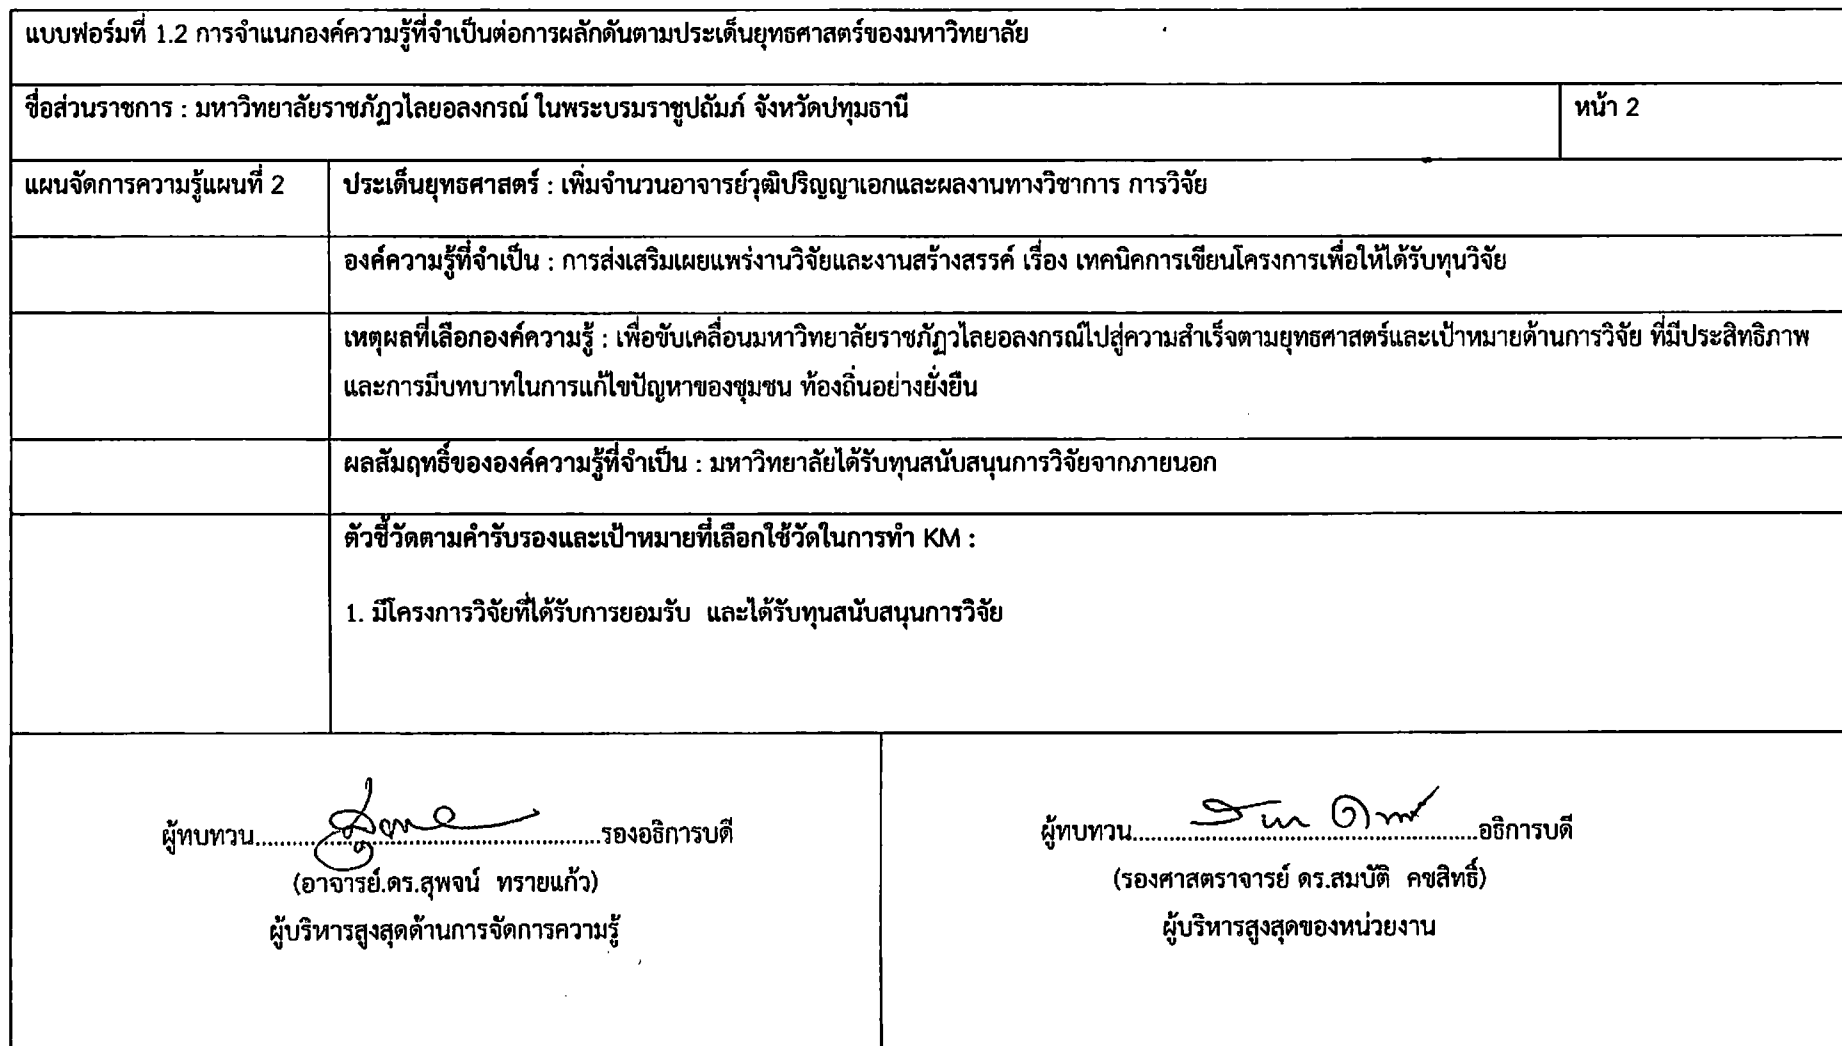 แบบฟอร์มที่ 1.2 การจำแนกองค์ความรู้ที่จำเป็นต่อการผลักดันตามประเด็นยุทธศาสตร์ของมหาวิทยาลัย
ชื่อส่วนราชการ : มหาวิทยาลัยราชภัฏวไลยอลงกรณ์ ในพระบรมราชูปถัมภ์ จังหวัดปทุมธานี หน้า 2
แผนจัดการความรู้แผนที่ 2 ประเด็นยุทธศาสตร์ : เพิ่มจำนวนอาจารย์วุฒิปริญญาเอกและผลงานทางวิชาการ การวิจัย
องค์ความรู้ที่จำเป็น : การส่งเสริมเผยแพร่งานวิจัยและงานสร้างสรรค์ เรื่อง เทคนิคการเขียนโครงการเพื่อให้ได้รับทุนวิจัย
เหตุผลที่เลือกองค์ความรู้ : เพื่อขับเคลื่อนมหาวิทยาลัยราชภัฏวไลยอลงกรณ์ไปสู่ความสำเร็จตามยุทธศาสตร์และเป้าหมายด้านการวิจัย ที่มีประสิทธิภาพ
และการมีบทบาทในการแก้ไขปัญหาของชุมชน ท้องถิ่นอย่างยั่งยืน
ผลสัมฤทธิ์ขององค์ความรู้ที่จำเป็น : มหาวิทยาลัยได้รับทุนสนับสนุนการวิจัยจากภายนอก
ตัวชี้วัดตามคำรับรองและเป้าหมายที่เลือกใช้วัดในการทำ KM :
1. มีโครงการวิจัยที่ได้รับการยอมรับ และได้รับทุนสนับสนุนการวิจัย
ผู้ทบทวน..................................................รองอธิการบดี
(อาจารย์.ดร.สุพจน์ ทรายแก้ว)
ผู้บริหารสูงสุดด้านการจัดการความรู้
ผู้ทบทวน..................................................อธิการบดี
(รองศาสตราจารย์ ดร.สมบัติ คชสิทธิ์)
ผู้บริหารสูงสุดของหน่วยงาน